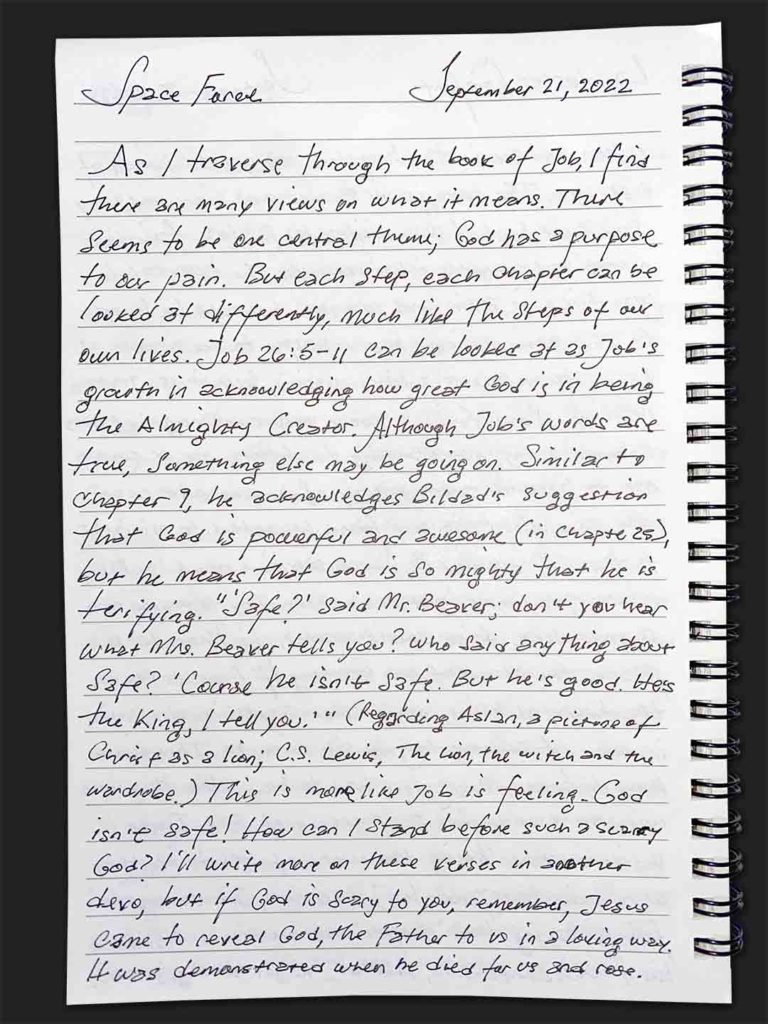 Space Force September 21, 2022
As I traverse through the book of Job, I find
there are many views on what it means. There
seems to be one central theme; God has a purpose
to our pain. But each step, each chapter can be
looked at differently, much like the steps of our
own lives. Job 26:5-11 can be looked at as Job's
growth in acknowledging how great God is in being
the Almighty Creator. Although Job's words are
true, something else may be going on. Similar to
chapter 9, he acknowledges Bildad's suggestion
that God is powerful and awesome (in Chapte 25),
but he means that God is so mighty that he is
terifying. "'Safe?' said Mr. Beaver; don't you hear
what Mrs. Beaver tells you? Who said anything about
safe? 'Course he isn't safe. But he's good. He's
the King, I tell you.'" (Regarding Aslan, a picture of
Christ as a lion; C.S. Lewis, The Lion, the witch and the
wardrobe.) This is more like Job is feeling. God
isn't safe! How can I stand before such a scary
God? I'll write more on these verses in another
devo, but if God is scary to you, remember, Jesus
came to reveal God, the Father to us in a loving way.
It was demonstrated when he died for us and rose.